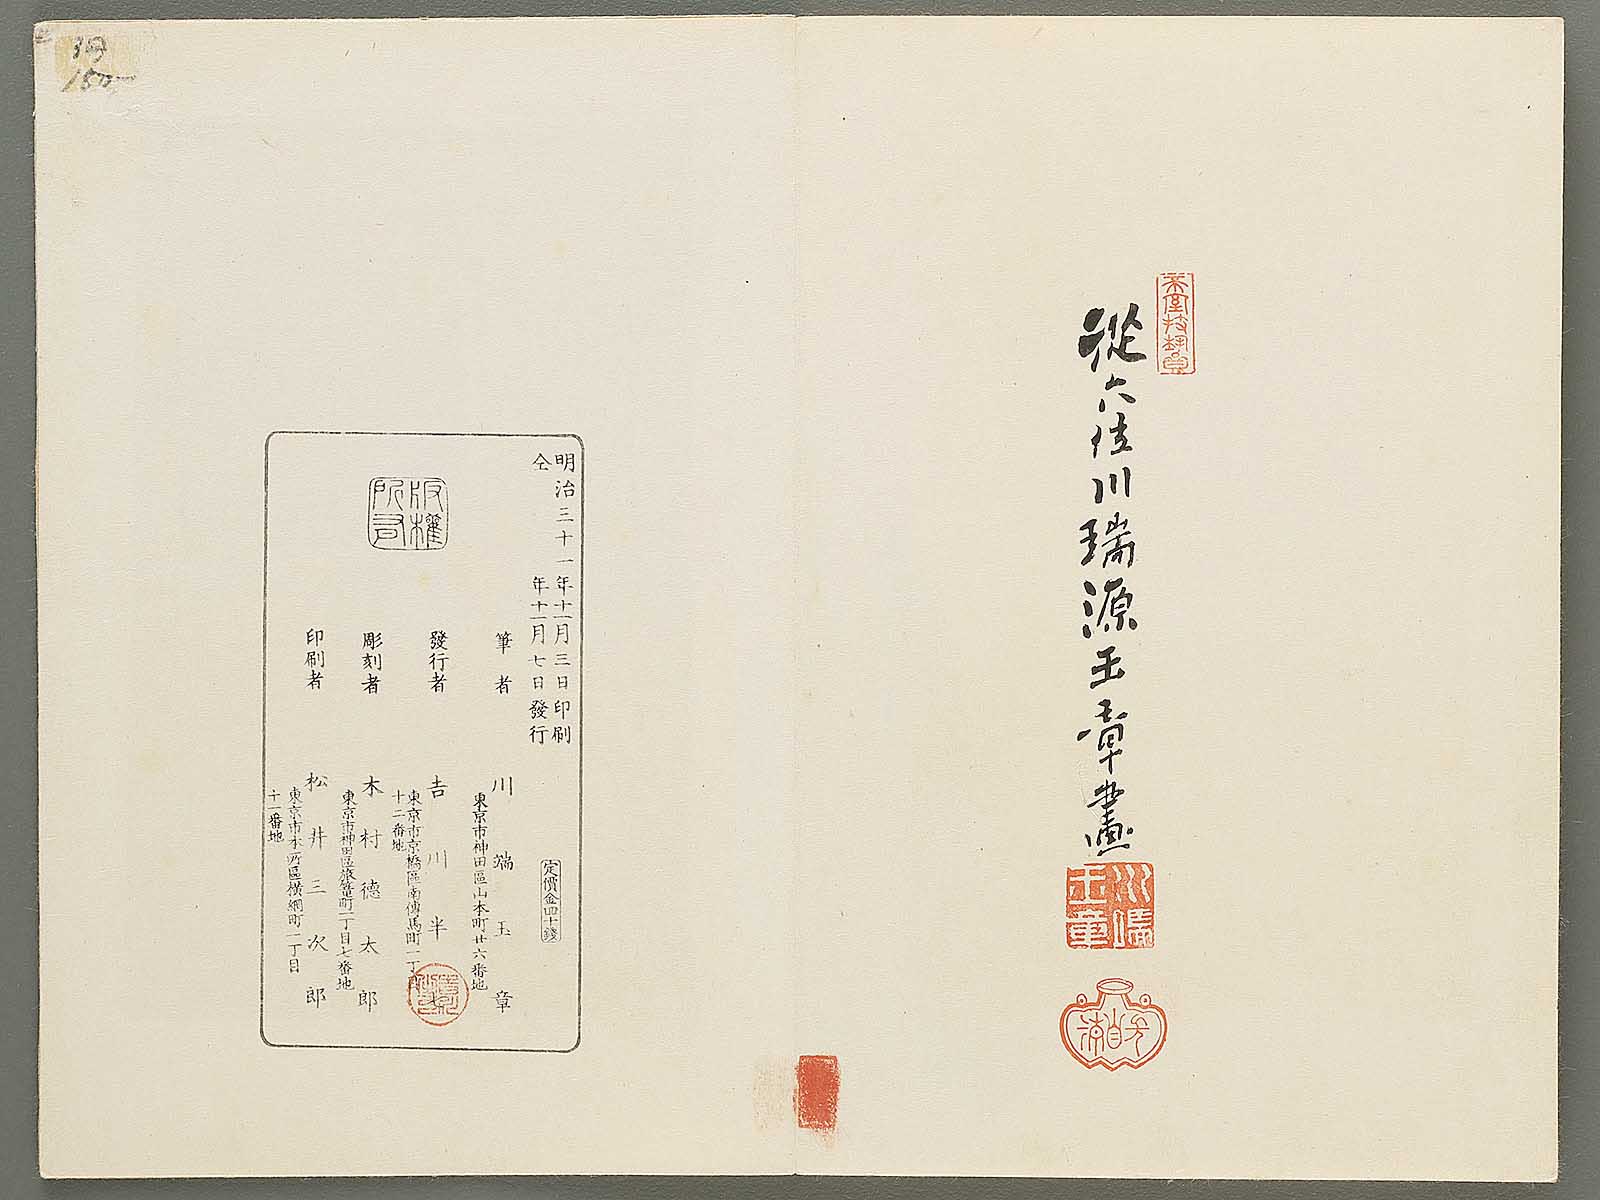 帝室技藝員
從六位川端源玉章畫
川端
玉章
明治三十一年十一月三日印刷
仝年十一月七日發行
定價金四十錢
版權
所有
筆者 川端玉章
東京市神田區山本町廿六番地
發行者 吉川半七
東京市京橋區南傳馬町一丁目
十二番地
彫刻者 木村德太郎
東京市神田區旅籠町一丁目七番地
印刷者 松井三次郎
東京市本所區横網町一丁目
十一番地